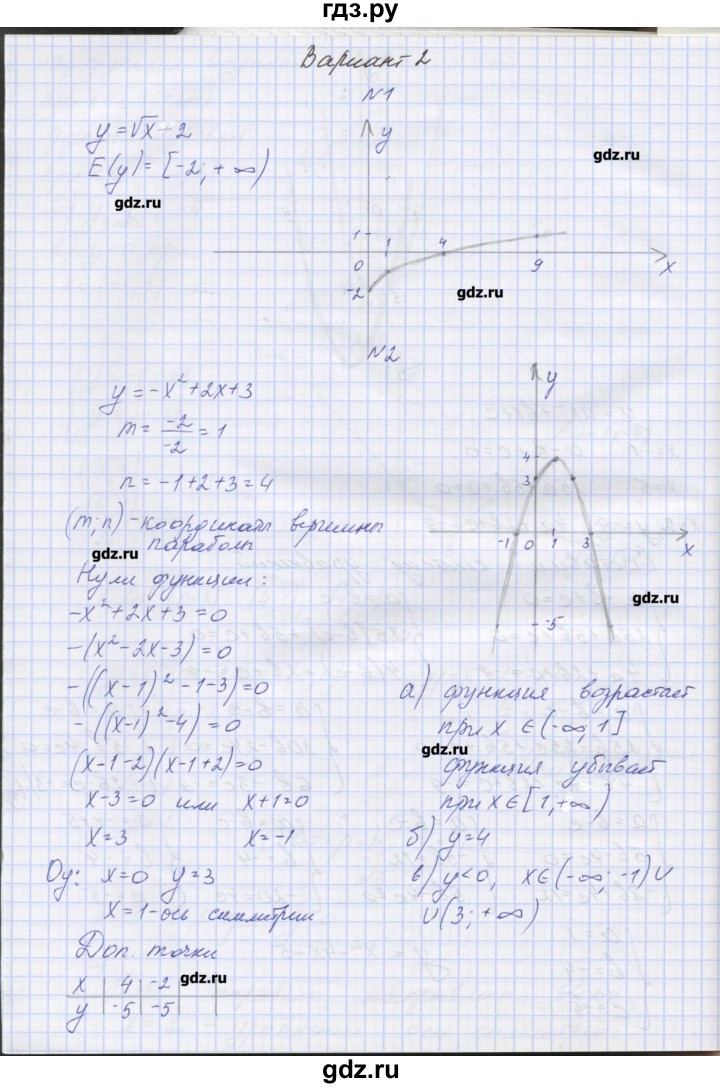 гдз.ру
Вариант 2
N1
y = √x - 2
E(y) = [-2; +∞)
gdz.ru
gdz.ru
y
1
1
4
0
9
x
-2
gdz.ru
N2
y = -x² + 2x + 3
m = -2/-2 = 1
n = -1 + 2 + 3 = 4
(m; n) - координаты вершины
параболы
gdz.ru
Нули функции:
-x² + 2x + 3 = 0
-(x² - 2x - 3) = 0
-((x - 1)² - 1 - 3) = 0
-((x-1)² - 4) = 0
(x - 1 - 2)(x - 1 + 2) = 0
x - 3 = 0 или x + 1 = 0
x = 3 x = -1
Oy: x = 0 y = 3
x = 1 - ось симметрии
Доп. точки
x 4 -2
y -5 -5
gdz.ru
y
4
3
-1 0 1 3
x
gdz.ru
-5
а) функция возрастает
при x ∈ (-∞; 1]
gdz.ru
функция убывает
при x ∈ [1; +∞)
б) y = 4
в) y < 0, x ∈ (-∞; -1) ∪
∪ (3; +∞)
gdz.ru